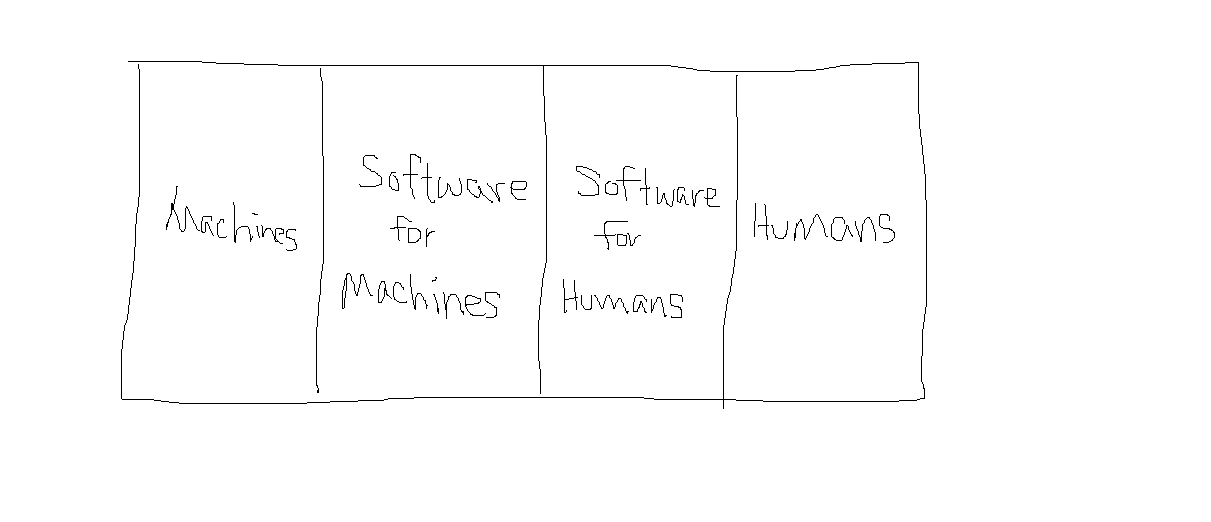 Machines
Software
for
Machines
Software
for
Humans
Humans